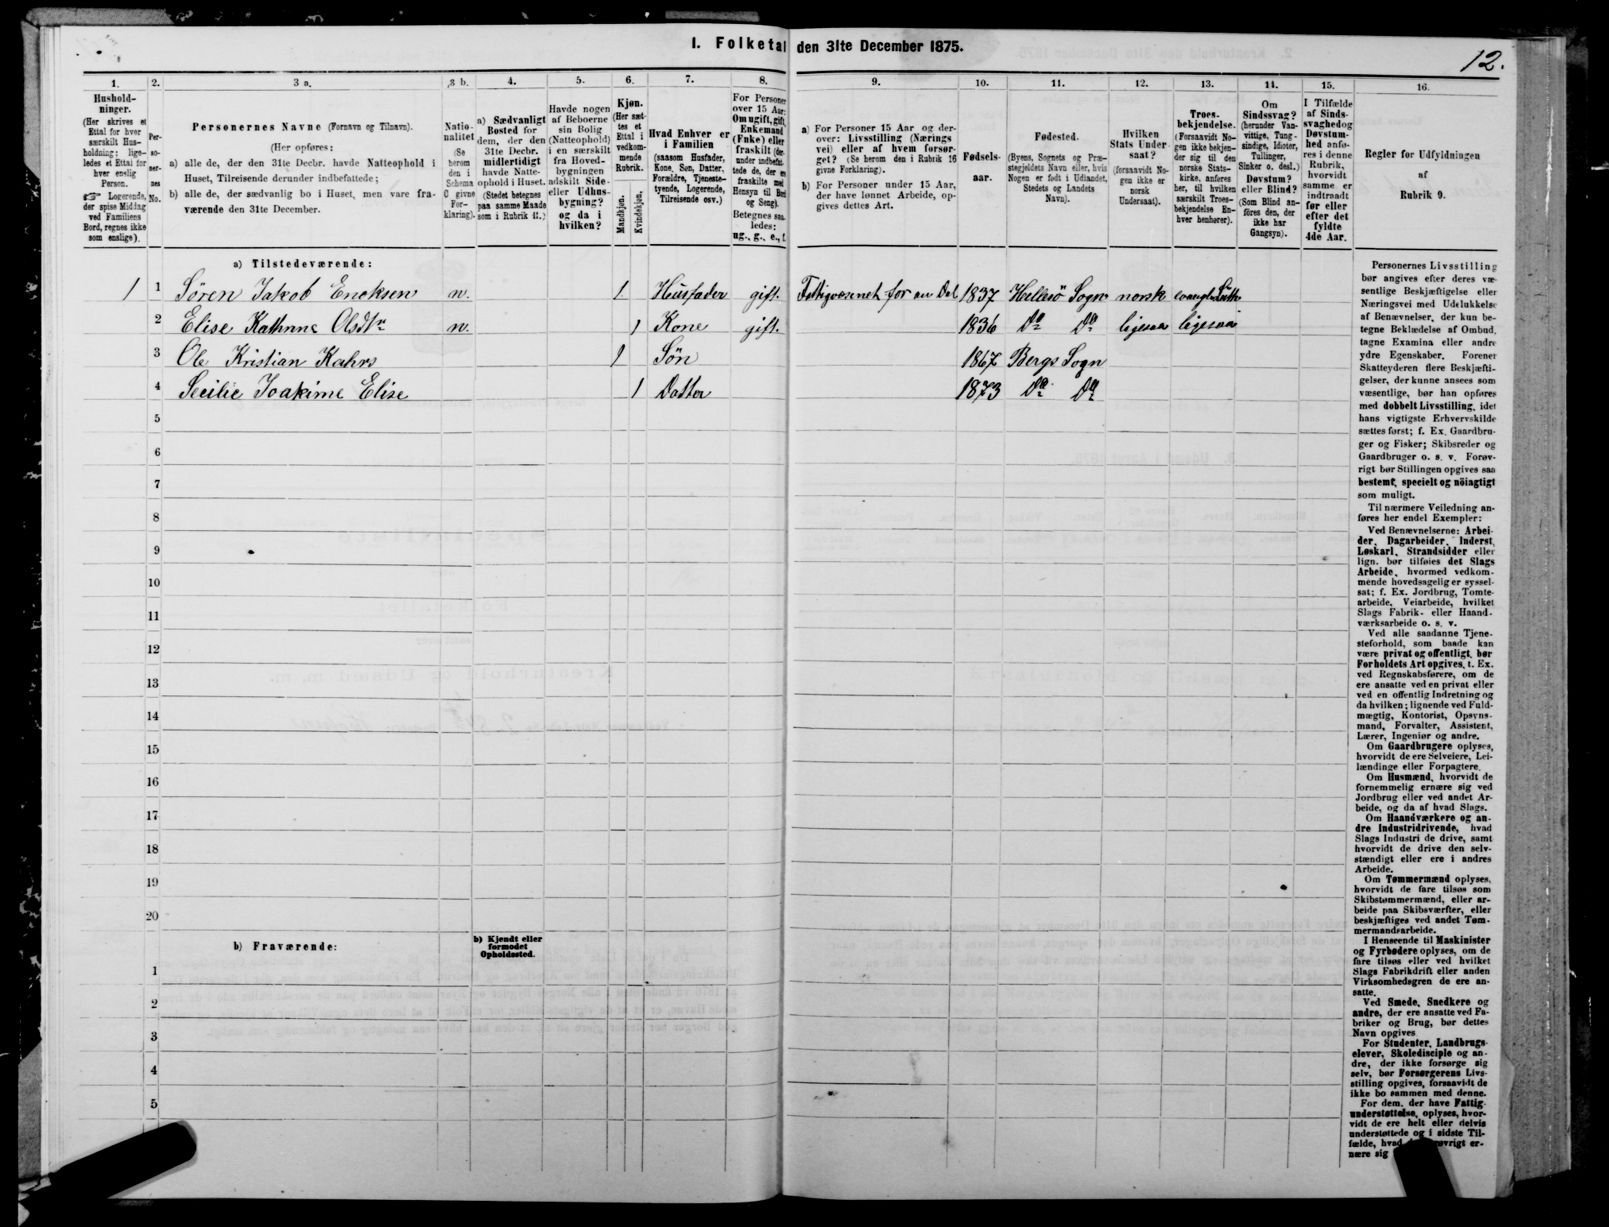 I. Folketal den 31te December 1875.
12.
1.
Hushold-
ninger.
(Her skrives et
Ettal for hver
særskilt Hus-
holdning; lige-
ledes et Ettal for
hver enslig
Person.
☞ Logerende,
der spise Middag
ved Familiens
Bord, regnes ikke
som enslige).
2.
Per-
so-
ner-
nes
No.
3 a.
Personernes Navne (Fornavn og Tilnavn).
(Her opføres:
a) alle de, der den 31te Decbr. havde Natteophold i
Huset, Tilreisende derunder indbefattede;
b) alle de, der sædvanlig bo i Huset, men vare fra-
værende den 31te December.
3 b.
Natio-
nalitet
(Se
herom
den i
Schema
C givne
For-
klaring).
4.
a) Sædvanligt
Bosted for
dem, der den
31te Decbr.
midlertidigt
havde Natte-
ophold i Huset.
(Stedet betegnes
paa samme Maade
som i Rubrik 11.)
5.
Havde nogen
af Beboerne
sin Bolig
(Natteophold)
i en særskilt
fra Hoved-
bygningen
adskilt Side-
eller Udhus-
bygning?
og da i
hvilken?
6.
Kjøn.
(Her sæt-
tes et
Ettal i
vedkom-
mende
Rubrik.
Mandkjøn.
Kvindekjøn.
7.
Hvad Enhver er
i Familien
(saasom Husfader,
Kone, Søn, Datter,
Forældre, Tjeneste-
tyende, Logerende,
Tilreisende osv.)
8.
For Personer
over 15 Aar:
Om ugift, gift,
Enkemand
(Enke) eller
fraskilt (der-
under indbefat-
tede de, der ere
fraskilte med
Hensyn til Bord
og Seng).
Betegnes saa-
ledes:
ug., g., e., f.
9.
a) For Personer 15 Aar og der-
over: Livsstilling (Nærings
vei) eller af hvem forsør-
get? (Se herom den i Rubrik 16
givne Forklaring).
b) For Personer under 15 Aar,
der have lønnet Arbeide, op-
gives dettes Art.
10.
Fødsels-
aar.
11.
Fødested.
(Byens, Sognets og Præ-
stegjeldets Navn eller, hvis
Nogen er født i Udlandet,
Stedets og Landets
Navn).
12.
Hvilken
Stats Under-
saat?
(forsaavidt No-
gen ikke er
norsk
Undersaat).
13.
Troes-
bekjendelse.
(Forsaavidt No-
gen ikke bekjen-
der sig til den
norske Stats-
kirke, anføres
her, til hvilken
særskilt Troes-
bekjendelse En-
hver henhører).
14.
Om
Sindssvag?
(herunder Van-
vittige, Tung-
sindige, Idioter,
Tullinger,
Sinker o. desl.)
Døvstum?
eller Blind?
(Som Blind an-
føres den, der
ikke har
Gangsyn).
15.
I Tilfælde
af Sinds-
svaghed og
Døvstum-
hed anfø-
res i denne
Rubrik,
hvorvidt
samme er
indtraadt
før eller
efter det
fyldte
4de Aar.
16.
Regler for Udfyldningen
af
Rubrik 9.
a) Tilstedeværende:
1 1 Søren Jakob Encksen n. 1 Husfader gift. Fattigvæsenet for en Del 1837 Hellesö Sogn norsk evangl. Luth
2 Elise Kathrine Olsdtr n. 1 Kone gift. 1836 Do Do ligesaa ligesaa
3 Ole Kristian Kahrs 1 Søn 1867 Bergs Sogn
4 Secilie Joakime Elise 1 Datter 1873 Do Do
5
6
7
8
9
10
11
12
13
14
15
16
17
18
19
20
b) Fraværende:
b) Kjendt eller
formodet
Opholdssted.
1
2
3
4
5
Personernes Livsstilling
bør angives efter deres væ-
sentlige Beskjæftigelse eller
Næringsvei med Udelukkelse
af Benævnelser, der kun be-
tegne Beklædelse af Ombud,
tagne Examina eller andre
ydre Egenskaber. Forener
Skatteyderen flere Beskjæfti-
gelser, der kunne ansees som
væsentlige, bør han opføres
med dobbelt Livsstilling, idet
hans vigtigste Erhvervskilde
sættes først; f. Ex. Gaardbru-
ger og Fisker; Skibsreder og
Gaardbruger o. s. v. Forøv-
rigt bør Stillingen opgives saa
bestemt, specielt og nöiagtigt
som muligt.
Til nærmere Veiledning an-
føres her endel Exempler:
Ved Benævnelserne: Arbei-
der, Dagarbeider, Inderst,
Løskarl, Strandsidder eller
lign. bør tilføies det Slags
Arbeide, hvormed vedkom-
mende hovedsagelig er syssel-
sat; f. Ex. Jordbrug, Tomte-
arbeide, Veiarbeide, hvilket
Slags Fabrik- eller Haand-
værksarbeide o. s. v.
Ved alle saadanne Tjene-
steforhold, som baade kan
være privat og offentligt, bør
Forholdets Art opgives, t. Ex.
ved Regnskabsførere, om de
ere ansatte ved en privat eller
ved en offentlig Indretning og
da hvilken; lignende ved Fuld-
mægtig, Kontorist, Opsyns-
mand, Forvalter, Assistent,
Lærer, Ingeniør og andre.
Om Gaardbrugere oplyses,
hvorvidt de ere Selveiere, Lei-
lændinge eller Forpagtere.
Om Husmænd, hvorvidt de
fornemmelig ernære sig ved
Jordbrug eller ved andet Ar-
beide, og da af hvad Slags.
Om Haandværkere og an-
dre Industridrivende, hvad
Slags Industri de drive, samt
hvorvidt de drive den selv-
stændigt eller ere i andres
Arbeide.
Om Tømmermænd oplyses,
hvorvidt de fare tilsøs som
Skibstømmermænd, eller ar-
beide paa Skibsværfter, eller
beskjæftiges ved andet Tøm-
mermandsarbeide.
I Henseende til Maskinister
og Fyrbødere oplyses, om de
fare tilsøs eller ved hvilket
Slags Fabrikdrift eller anden
Virksomhedsgren de ere an-
satte.
Ved Smede, Snedkere og
andre, der ere ansatte ved Fa-
briker og Brug, bør dettes
Navn opgives
For Studenter, Landbrugs-
elever, Skoledisciple og an-
dre, der ikke forsørge sig
selv, bør Forsørgerens Livs-
stilling opgives, forsaavidt de
ikke bo sammen med denne.
For dem, der have Fattig-
understøttelse, oplyses, hvor-
vidt de ere helt eller delvis
understøttede og i sidste Til-
fælde, hvad øvrigt er-
nære sig